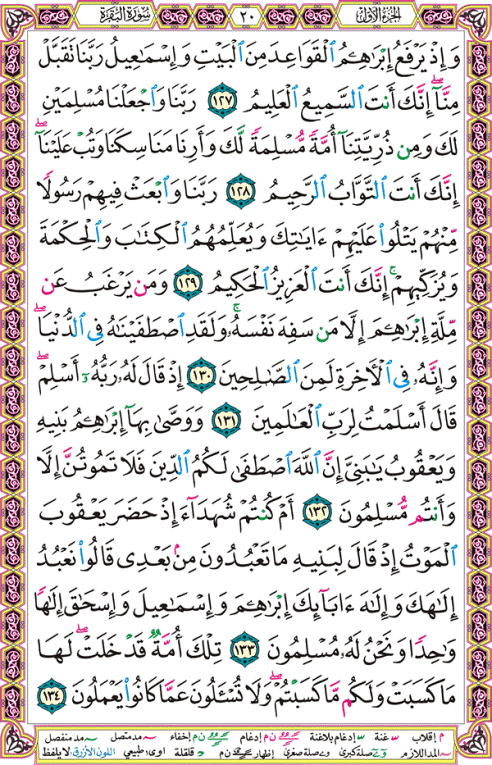 الجزء الأول ٢٠ سورة البقرة
وَإِذْ يَرْفَعُ إِبْرَاهِـۧمُ الْقَوَاعِدَ مِنَ الْبَيْتِ وَإِسْمَاعِيلُ رَبَّنَا تَقَبَّلْ
مِنَّآ ۖ إِنَّكَ أَنتَ السَّمِيعُ الْعَلِيمُ ١٢٧ رَبَّنَا وَاجْعَلْنَا مُسْلِمَيْنِ
لَكَ وَمِن ذُرِّيَّتِنَآ أُمَّةً مُّسْلِمَةً لَّكَ وَأَرِنَا مَنَاسِكَنَا وَتُبْ عَلَيْنَآ ۖ
إِنَّكَ أَنتَ التَّوَّابُ الرَّحِيمُ ١٢٨ رَبَّنَا وَابْعَثْ فِيهِمْ رَسُولًا
مِّنْهُمْ يَتْلُوا۟ عَلَيْهِمْ ءَايَاتِكَ وَيُعَلِّمُهُمُ الْكِتَابَ وَالْحِكْمَةَ
وَيُزَكِّيهِمْ ۚ إِنَّكَ أَنتَ الْعَزِيزُ الْحَكِيمُ ١٢٩ وَمَن يَرْغَبُ عَن
مِّلَّةِ إِبْرَاهِـۧمَ إِلَّا مَن سَفِهَ نَفْسَهُۥ ۚ وَلَقَدِ اصْطَفَيْنَاهُ فِي الدُّنْيَا ۖ
وَإِنَّهُۥ فِي الْأَخِرَةِ لَمِنَ الصَّالِحِينَ ١٣٠ إِذْ قَالَ لَهُۥ رَبُّهُۥٓ أَسْلِمْ ۖ
قَالَ أَسْلَمْتُ لِرَبِّ الْعَالَمِينَ ١٣١ وَوَصَّىٰ بِهَآ إِبْرَاهِـۧمُ بَنِيهِ
وَيَعْقُوبُ يَابَنِيَّ إِنَّ اللَّهَ اصْطَفَىٰ لَكُمُ الدِّينَ فَلَا تَمُوتُنَّ إِلَّا
وَأَنتُم مُّسْلِمُونَ ١٣٢ أَمْ كُنتُمْ شُهَدَآءَ إِذْ حَضَرَ يَعْقُوبَ
الْمَوْتُ إِذْ قَالَ لِبَنِيهِ مَا تَعْبُدُونَ مِنۢ بَعْدِي قَالُوا۟ نَعْبُدُ
إِلَٰهَكَ وَإِلَٰهَ ءَابَآئِكَ إِبْرَاهِـۧمَ وَإِسْمَاعِيلَ وَإِسْحَاقَ إِلَٰهًا
وَاحِدًا وَنَحْنُ لَهُۥ مُسْلِمُونَ ١٣٣ تِلْكَ أُمَّةٌ قَدْ خَلَتْ ۖ لَهَا
مَا كَسَبَتْ وَلَكُم مَّا كَسَبْتُمْ ۖ وَلَا تُسْـَٔلُونَ عَمَّا كَانُوا۟ يَعْمَلُونَ ١٣٤
م إقلاب س غنة س إدغام بلاغنة ن م إدغام ن م إخفاء مد متصل مد منفصل
المد اللازم صلة كبرى وصلة صغرى إظهار ن م قلقلة اوى طبيعي اللون الأزرق لا يلفظ